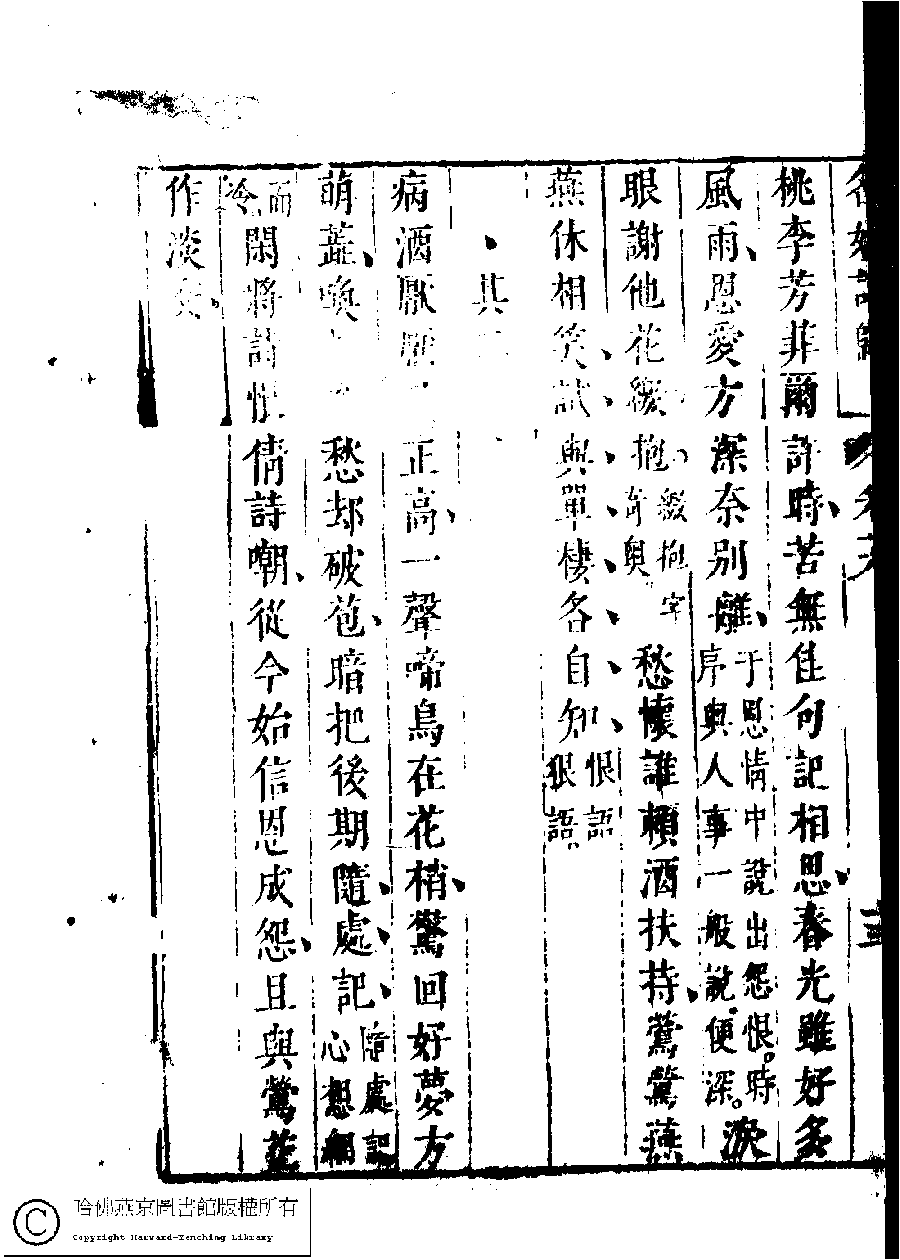 桃李芳菲爾許時苦無佳句記相思春光雖好多
風雨恩愛方深奈別離于恩情中說出怨恨時序與人事一般說便深淚
眼謝他花綴抱綴抱字奇奧愁懷誰賴酒扶持鶯鶯燕
燕休相笑試與單棲各自知恨語狠語
其
病酒厭厭正高一聲啼鳥在花梢驚回好夢方
萌蘖喚愁却破苞暗把後期隨處記隨處記心想細
而冷閑將詩恨倩詩嘲從今始信恩成怨且與鶯花
作淡交
哈佛燕京圖書館版權所有
Copyright Harvard-Yenching Library